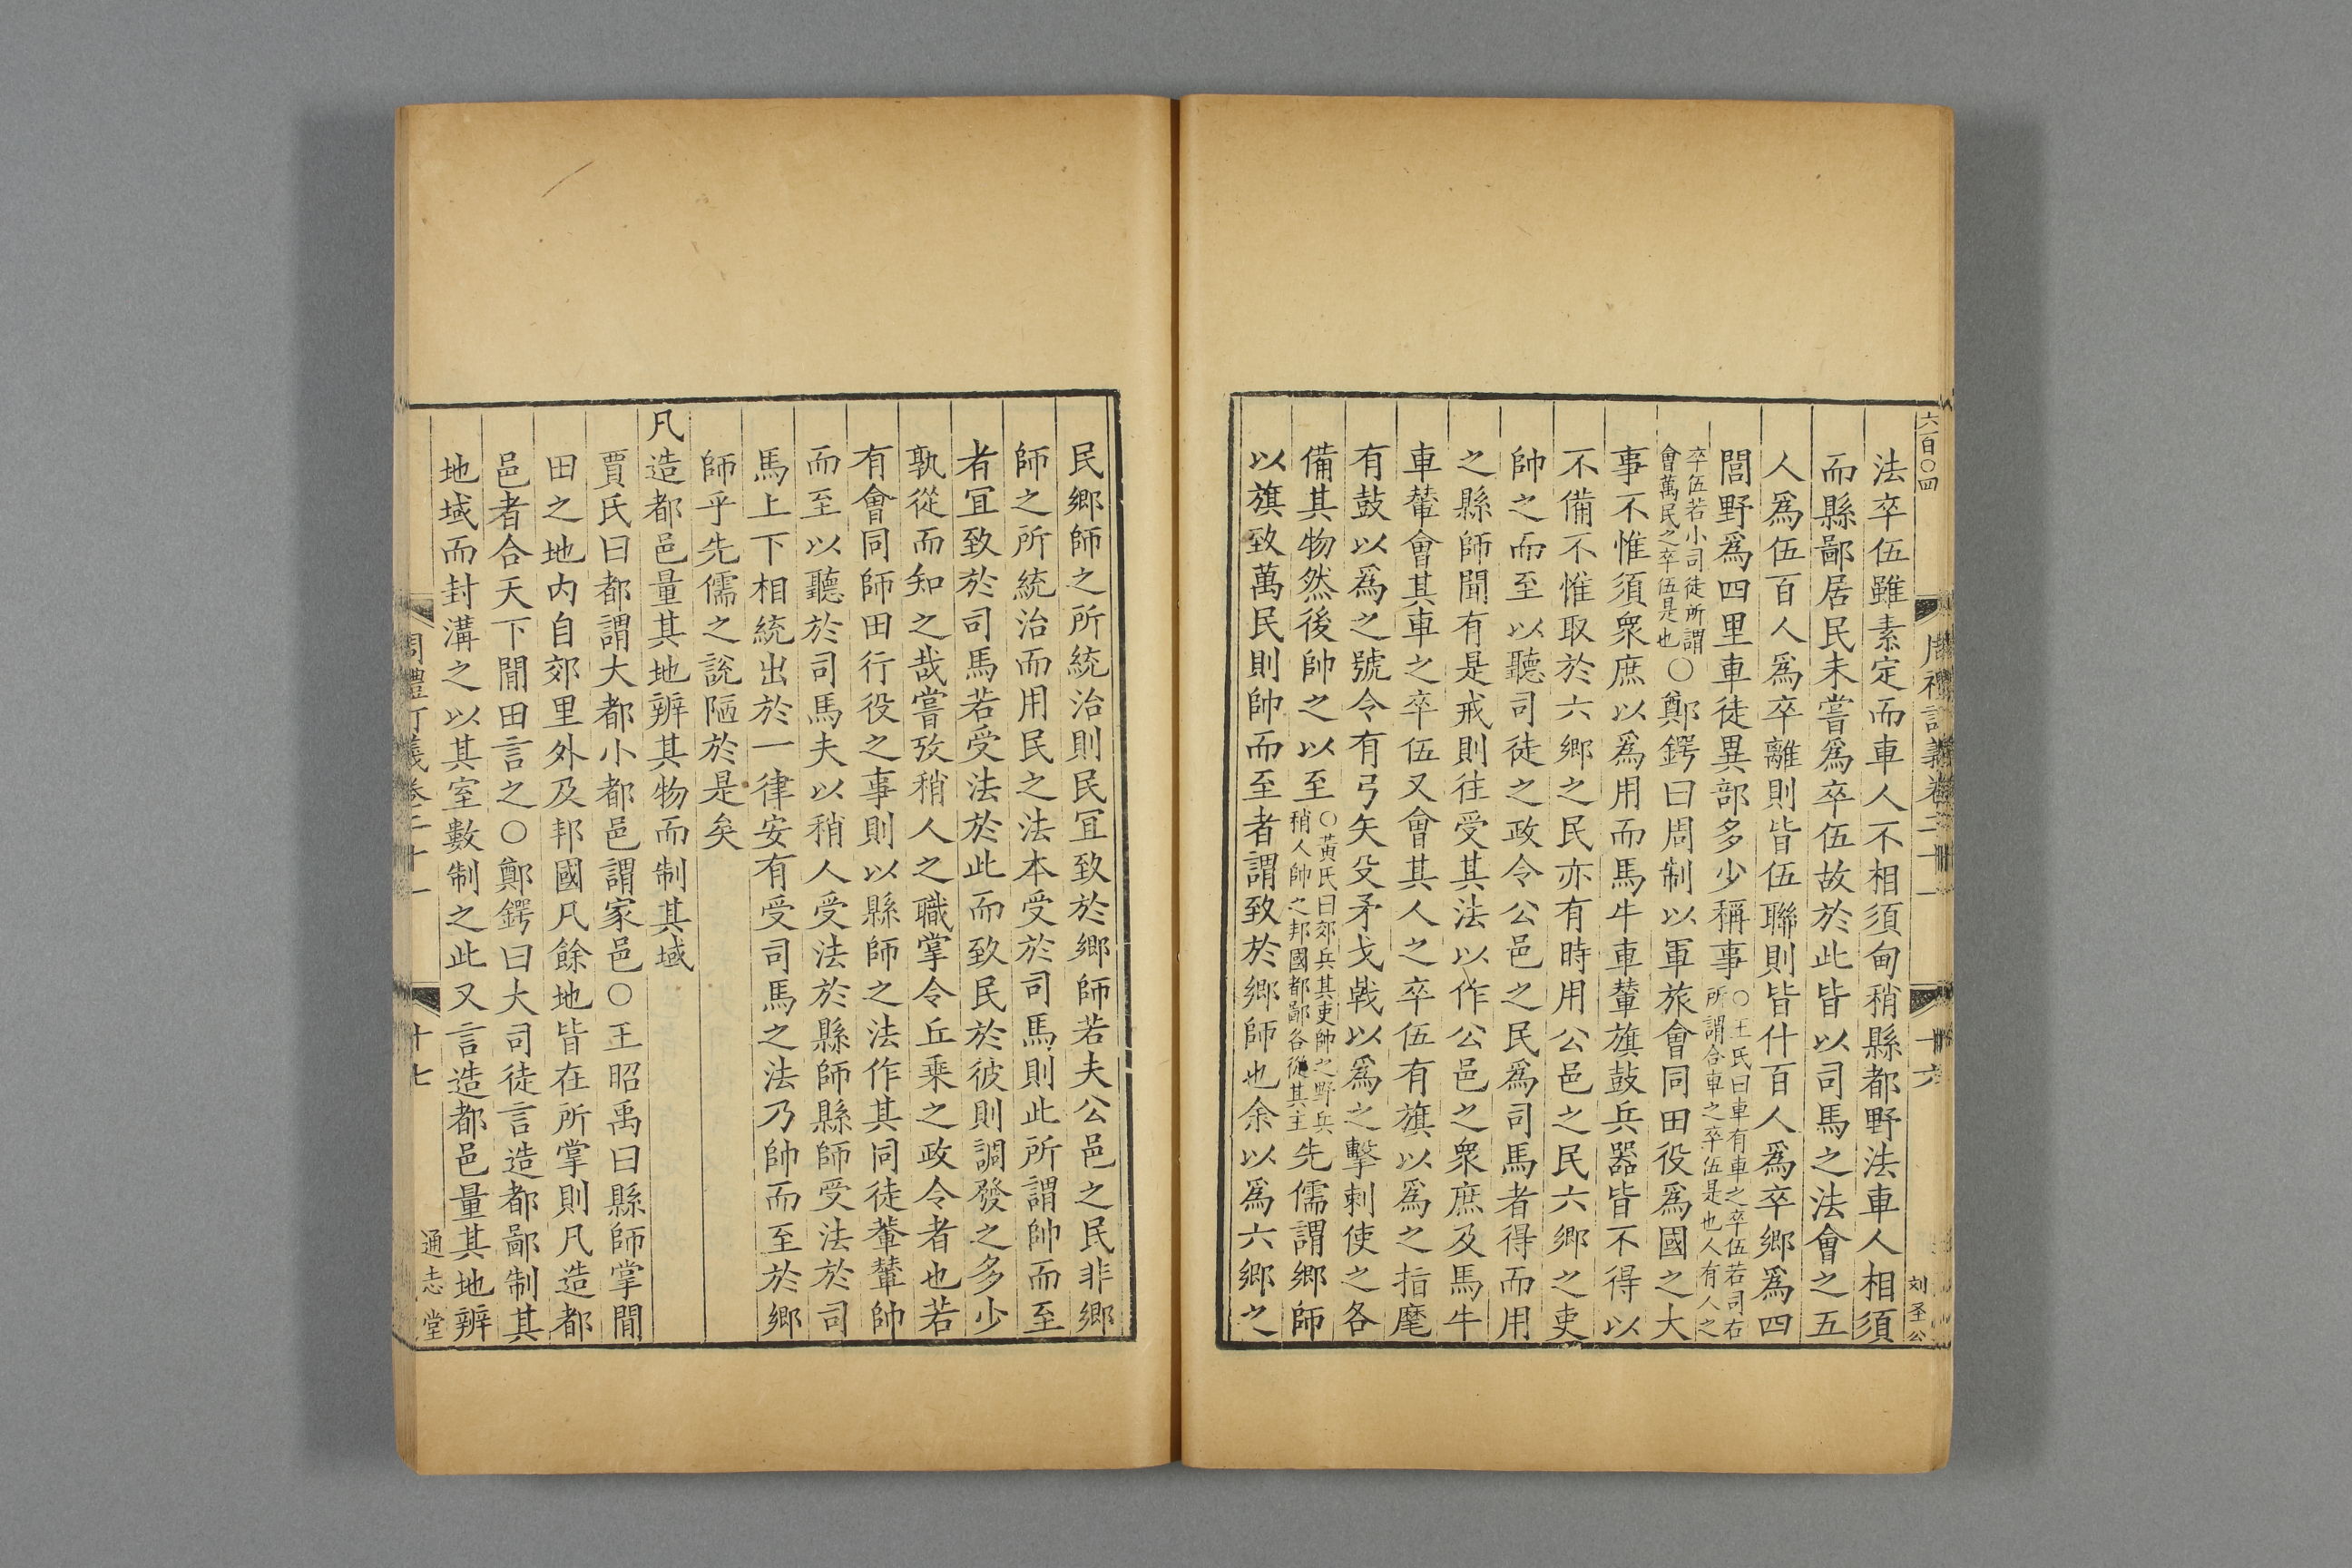 六百〇四
周禮訂義卷二十一
十六
刘圣公
法卒伍雖素定而車人不相須甸稍縣都野法車人相須
而縣鄙居民未嘗爲卒伍故於此皆以司馬之法會之五
人爲伍百人爲卒離則皆伍聯則皆什百人爲卒鄉爲四
閭野爲四里車徒異部多少稱事〇王氏曰車有車之卒伍若司右
所謂合車之卒伍是也人有人之
卒伍若小司徒所謂
會萬民之卒伍是也〇鄭鍔曰周制以軍旅會同田役爲國之大
事不惟須衆庶以爲用而馬牛車輦旗鼓兵器皆不得以
不備不惟取於六鄉之民亦有時用公邑之民六鄉之吏
帥之而至以聽司徒之政令公邑之民爲司馬者得而用
之縣師聞有是戒則往受其法以作公邑之衆庶及馬牛
車輦會其車之卒伍又會其人之卒伍有旗以爲之指麾
有鼓以爲之號令有弓矢殳矛戈戟以爲之擊刺使之各
備其物然後帥之以至〇黃氏曰郊兵其吏帥之野兵
稍人帥之邦國都鄙各從其主先儒謂鄉師
以旗致萬民則帥而至者謂致於鄉師也余以爲六鄉之
民鄉師之所統治則民宜致於鄉師若夫公邑之民非鄉
師之所統治而用民之法本受於司馬則此所謂帥而至
者宜致於司馬若受法於此而致民於彼則調發之多少
孰從而知之哉嘗攷稍人之職掌令丘乘之政令者也若
有會同師田行役之事則以縣師之法作其同徒輂輦帥
而至以聽於司馬夫以稍人受法於縣師縣師受法於司
馬上下相統出於一律安有受司馬之法乃帥而至於鄉
師乎先儒之說陋於是矣
凡造都邑量其地辨其物而制其域
賈氏曰都謂大都小都邑謂家邑〇王昭禹曰縣師掌閒
田之地内自郊里外及邦國凡餘地皆在所掌則凡造都
邑者合天下閒田言之〇鄭鍔曰大司徒言造都鄙制其
地域而封溝之以其室數制之此又言造都邑量其地辨
周禮訂義卷二十一
十七
通志堂